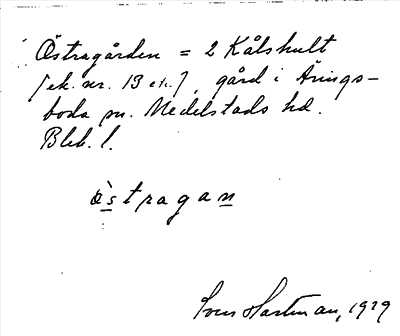 Östragården = 2 Kålshult
[ek. nr. 13 etc.], gård i Årings-
boda sn. Medelstads hd.
Blek. l.
òstragan
Sven Hartman, 1929